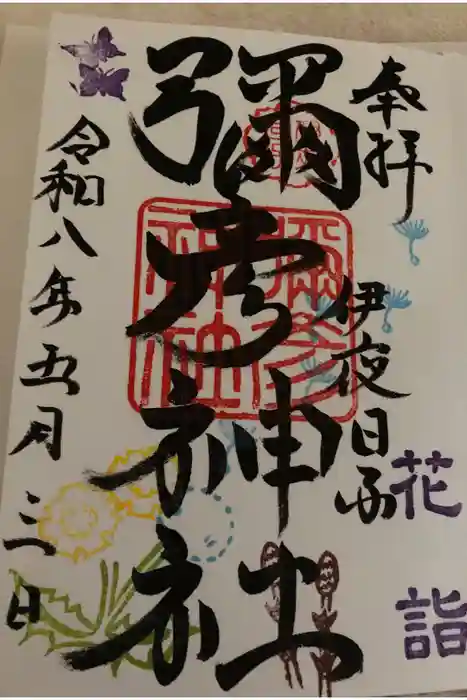 奉拝
伊夜日子
花詣
彌彦神社
彌彦神社
令和八年五月三日